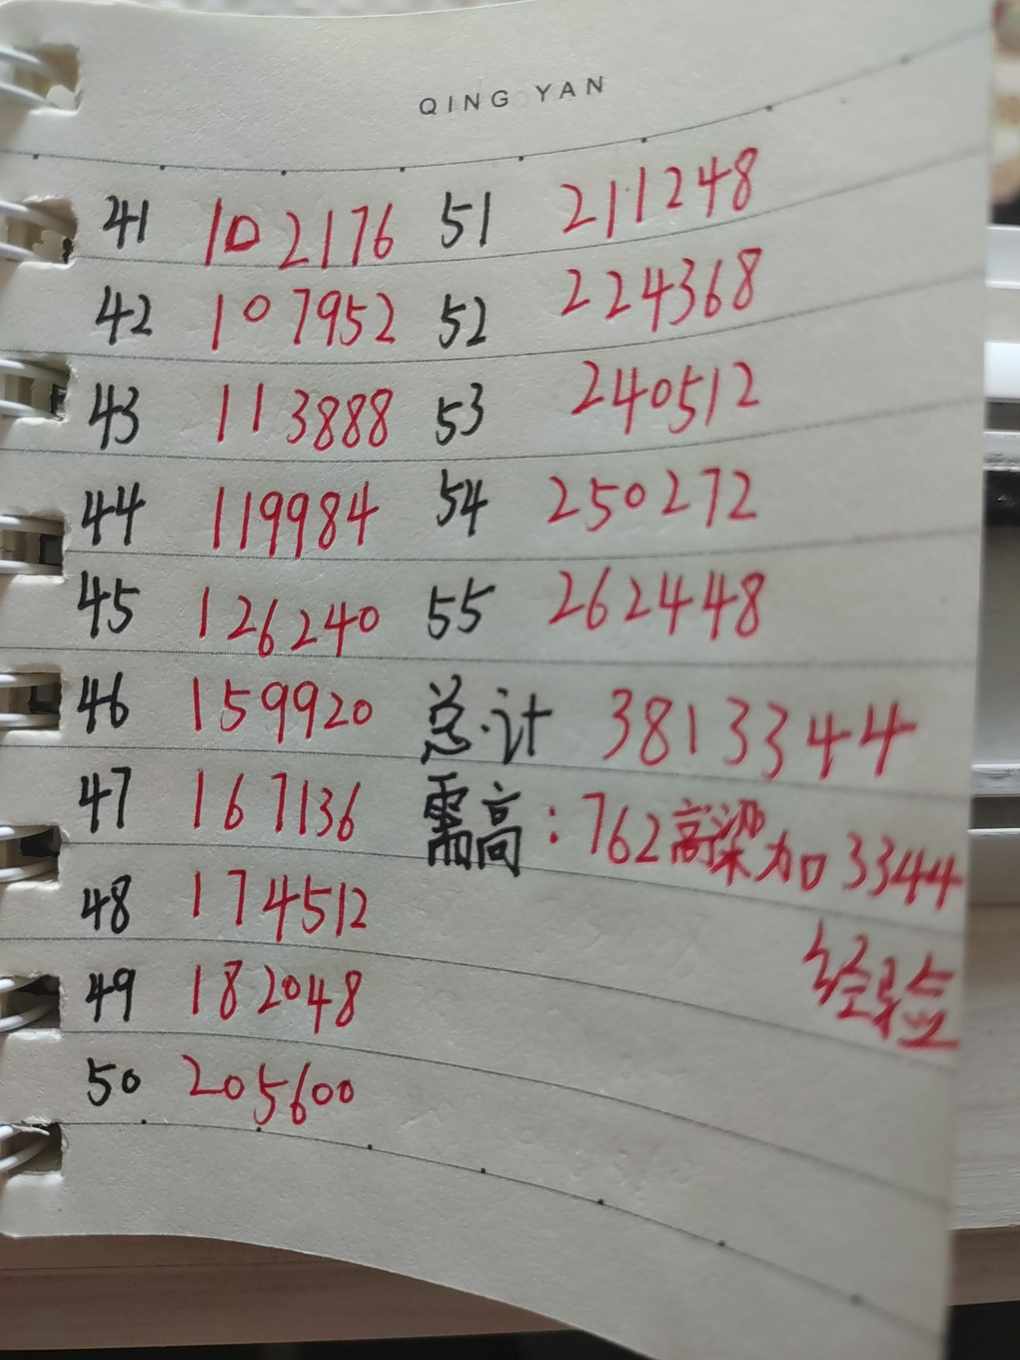 QING YAN
41 102176 51 211248
42 107952 52 224368
43 113888 53 240512
44 119984 54 250272
45 126240 55 262448
46 159920 总计 3813344
47 167136 需高：762高粱加3344
48 174512 经验
49 182048
50 205600